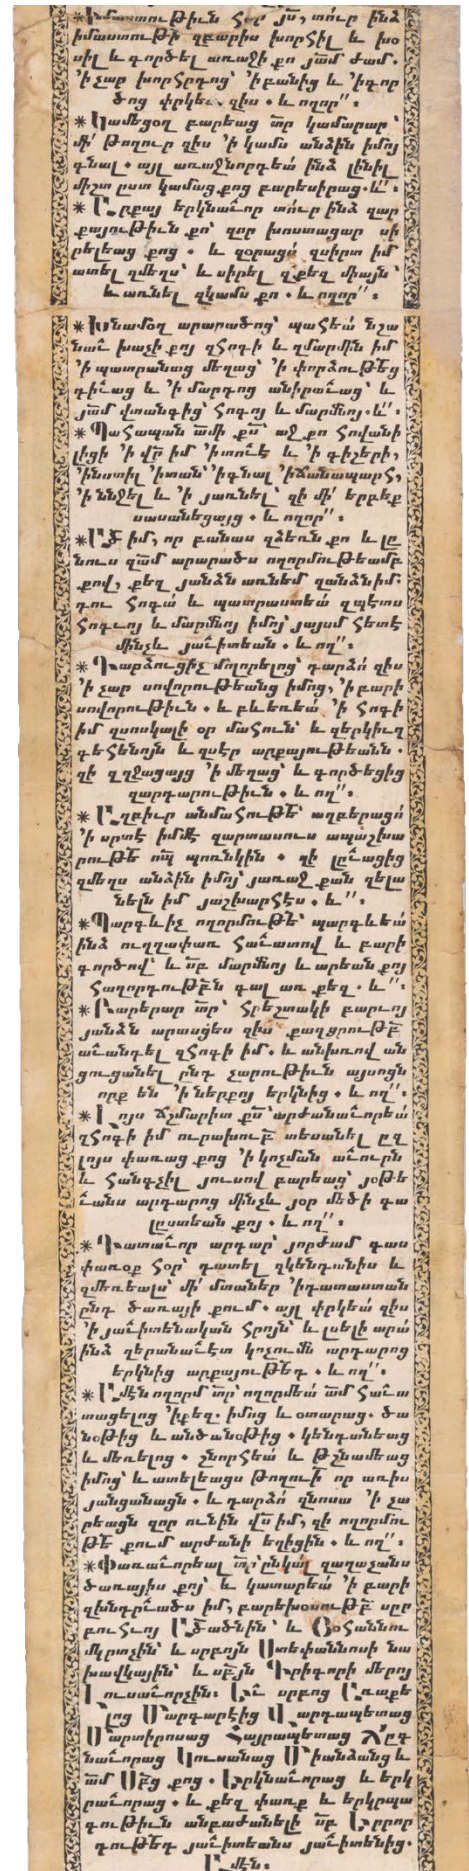 *Իմաստութիւն հօր յս՟, տո՛ւր ինձ
իմաստութի զբարիս խորհիլ և խօ
սիլ և գործել առաջի քո յա՟մ ժամ.
'ի չար խորհրդոց՝ 'ի բանից և 'ի գոր
ծոց փրկեա՛ զիս. և ողոր՛՛։
*Կամեցօղ բարեաց տ՟ր կամարար՝
մի՛ թողուր զիս 'ի կամս անձին իմոյ
գնալ. այլ առաջնորդեա՛ ինձ լինիլ
միշտ ըստ կամաց քոց բարեսիրաց. և՛՛։
*Արքայ երկնաւ՟որ տո՛ւր ինձ զար
քայութիւն քո՝ զոր խոստացար սի
րելեաց քոց. և զօրացո՛ զսիրտ իմ
ատել զմեղս՝ և սիրել զքեզ միայն՝
և առնել զկամս քո. և ողոր՛՛։
*Խնամօղ արարածոց՝ պահեա՛ նշա
նաւ՟ խաչի քոյ զհոգի և զմարմին իմ
'ի պատրանաց մեղաց՝ 'ի փորձութեց
դիւ՟աց և 'ի մարդոց անիրաւ՟աց՝ և
յա՟մ վտանգից՝ հոգոյ և մարմնոյ. և՛՛։
*Պահապան ա՟մի քս՟՝ աջ քո հովանի
լիցի 'ի վր՟ իմ 'ի տուէ և 'ի գիշերի,
'ի նստիլ 'ի տան՝ 'ի գնալ 'ի ճանապարհ,
'ի ննջել և 'ի յառնել՝ զի մի՛ երբեք
սասանեցայց. և ողոր՛՛։
*Ած՟ իմ, որ բանաս զձեռն քո և լը
նուս զա՟մ արարածս ողորմութեամբ
քով, քեզ յանձն առնեմ զանձնիմ.
դու հոգա՛ և պատրաստեա՛ զպէտս
հոգւոյ և մարմնոյ իմոյ՝ յայսմ հետէ
մինչև յաւ՟իտեան. և ող՛՛։
*Դարձուցիչ մոլորելոց՝ դարձո՛ զիս
'ի չար սովորութեանց իմոց, 'ի բարի
սովորութիւն. և բևեռեա՛ 'ի հոգի
իմ զսոսկալի օր մահուն՝ և զերկիւղ
գեհենոյն և զսէր արքայութեանն.
զի զղջացայց 'ի մեղաց՝ և գործեցից
զարդարութիւն. և ող՛՛։
*Աղբիւր անմահութե՝ աղբերացո՛
'ի սրտէ իմմէ զարտասուս ապաշխա
րութե որպ պոռնկին. զի լըւ՟ացից
զմեղս անձին իմոյ՝ յառաջ քան զելա
նելն իմ յաշխարհէս. և՛՛։
*Պարգևիչ ողորմութե՝ պարգևեա՛
ինձ ուղղափառ հաւ՟ատով և բարի
գործով՝ և սբ՟ մարմնոյ և արեան քոյ
հաղորդութբն գալ առ քեզ. և՛՛։
*Բարերար տ՟ր՝ հրեշտակի բարւոյ
յանձն արասցես զիս՝ քաղցրութբ
աւ՟անդել զհոգի իմ. և անխռով ան
ցուցանել ընդ չարութիւն այսոցն
որք են 'ի ներքոյ երկնից. և ող՛՛։
*Լոյս ճշմարիտ քս՟՝ արժանաւ՟որեա՛
զհոգի իմ ուրախութբ տեսանել ըզ
լոյս փառաց քոց 'ի կոչման աւ՟ուրն
և հանգչիլ յուսով բարեաց՝ յօթե
ւ՟անս արդարոց մինչև յօր մեծի գա
լըստեան քոյ. և ող՛՛։
*Դատաւ՟որ արդար՝ յորժամ գաս
փառօք հօր՝ դատել զկենդանիս և
զմեռեալս՝ մի՛ մտաներ 'ի դատաստան
ընդ ծառայի քում. այլ փրկեա՛ զիս
'ի յաւ՟իտենական հրոյն՝ և լսելի արա՛
ինձ զերանաւ՟ետ կոչումն արդարոց
երկնից արքայութեդ. և ող՛՛։
*Ամէնողորմ տ՟ր՝ ողորմեա՛ ա՟մ հաւ՟ա
տացելոց 'ի քեզ. իմոց և օտարաց. ծա
նօթից և անծանօթից. կենդանեաց
և մեռելոց. շնորհեա՛ և թշնամեաց
իմոց՝ և ատելեացս թողութի որ առիս
յանցանացն. և դարձո՛ զնոսա 'ի չա
րեացն զոր ունին վս՟ իմ, զի ողորմու
թե քում արժանի եղիցին. և ող՛՛։
*Փառաւ՟որեալ տ՟ր՝ ընկա՛լ զաղաչանս
ծառայիս քոյ՝ և կատարեա՛ 'ի բարի
զխնդրւ՟ածս իմ, բարեխօսութբ սըր
բուհւոյ Ած՟ածնին՝ և Յօհաննու
մկրտչին՝ և սրբոյն Ստեփաննոսի նա
խավկային՝ և սբ՟յն Գրիգորի մերոյ
Լուսաւ՟որչին։ Եւ՟ սրբոց Առաքե
լոց Մարգարէից Վարդապետաց
Մարտիրոսաց Հայրապետաց Ճըգ
նաւ՟որաց Կուսանաց Միանձանց և
ա՟մ Սբ՟ց քոց. Երկնաւ՟որաց և երկ
րաւ՟որաց. և քեզ փառք և երկրպա
գութիւն անբաժանելի սբ՟ Երրոր
դութեդ յաւ՟իտեանս յաւ՟իտենից.
Ամէն։